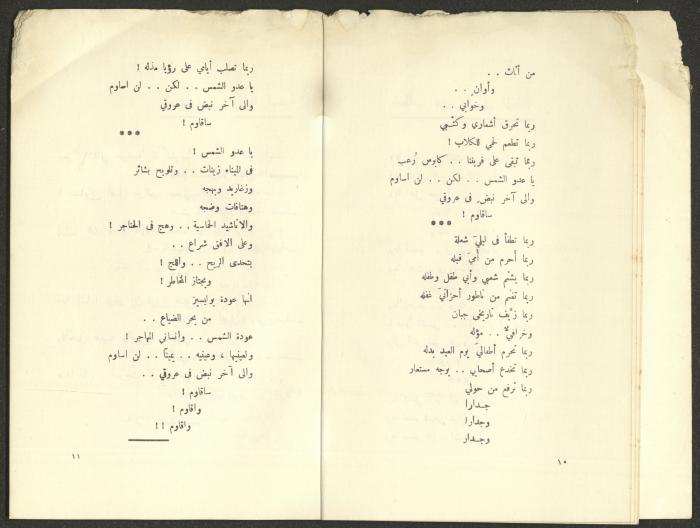 من أثاث . .
وأوان . .
وخوابي . .
ربما تحرق أشعاري وكتبي
ربما تطعم لحمي للكلاب !
ربما تبقى على قريتنا . . كابوس رُعب
يا عدو الشمس . . لكن . . لن اساوم
والى آخر نبض في عروقي
ساقاوم !
***
ربما تطفأ في ليليَ شعلة
ربما أحرم من أميَ قبله
ربما يشتم شعبي وأبي طفل وطفله
ربما تغنم من ناطور أحزانيَ غفله
ربما زيّف تاريخي جبان
وخرافيٌّ . . مؤله
ربما تحرم أطفاليَ يوم العيد بدله
ربما تخدع أصحابي . . بوجه مستعار
ربما ترفع من حولي
جدارا
وجدارا
وجدار
١٠
ربما تصلب أيامي على رؤيا مذله !
يا عدو الشمس . . لكن . . لن اساوم
والى آخر نبض في عروقي
ساقاوم !
***
يا عدو الشمس !
في الميناء زينات . . وتلويح بشائر
وزغاريد وبهجه
وهتافات وضجه
والاناشيد الحماسية . . وهج في الحناجر !
وعلى الافق شراع . .
يتحدى الريح . . واللج !
ويجتاز المخاطر !
انها عودة يوليسيز
من بحر الضياع . .
عودة الشمس . . وانساني المهاجر !
ولعينيها ، وعينيه . . يمينًا . . لن اساوم
والى آخر نبض في عروقي . .
ساقاوم !
واقاوم !
واقاوم !!
١١